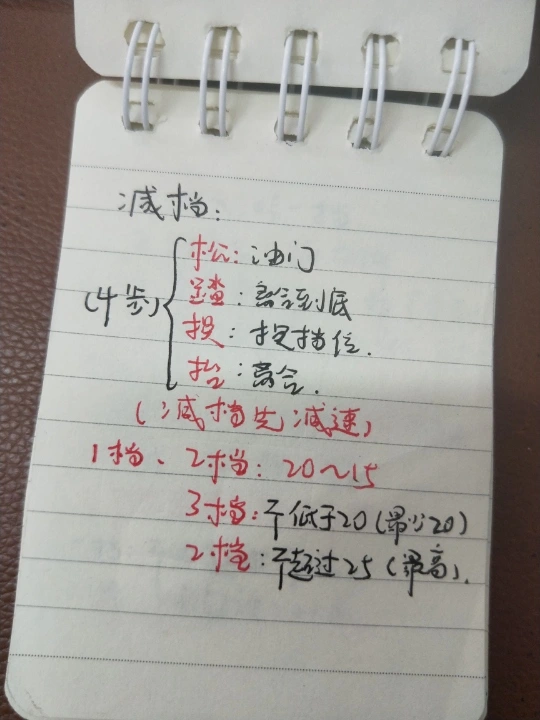 减档:
松:油门
(4步) 踏:离合到底
换:换挡位.
抬:离合.
(减档先减速)
1档、2档:20~15
3档:不低于20(最少20)
2档:不超过25(最高).